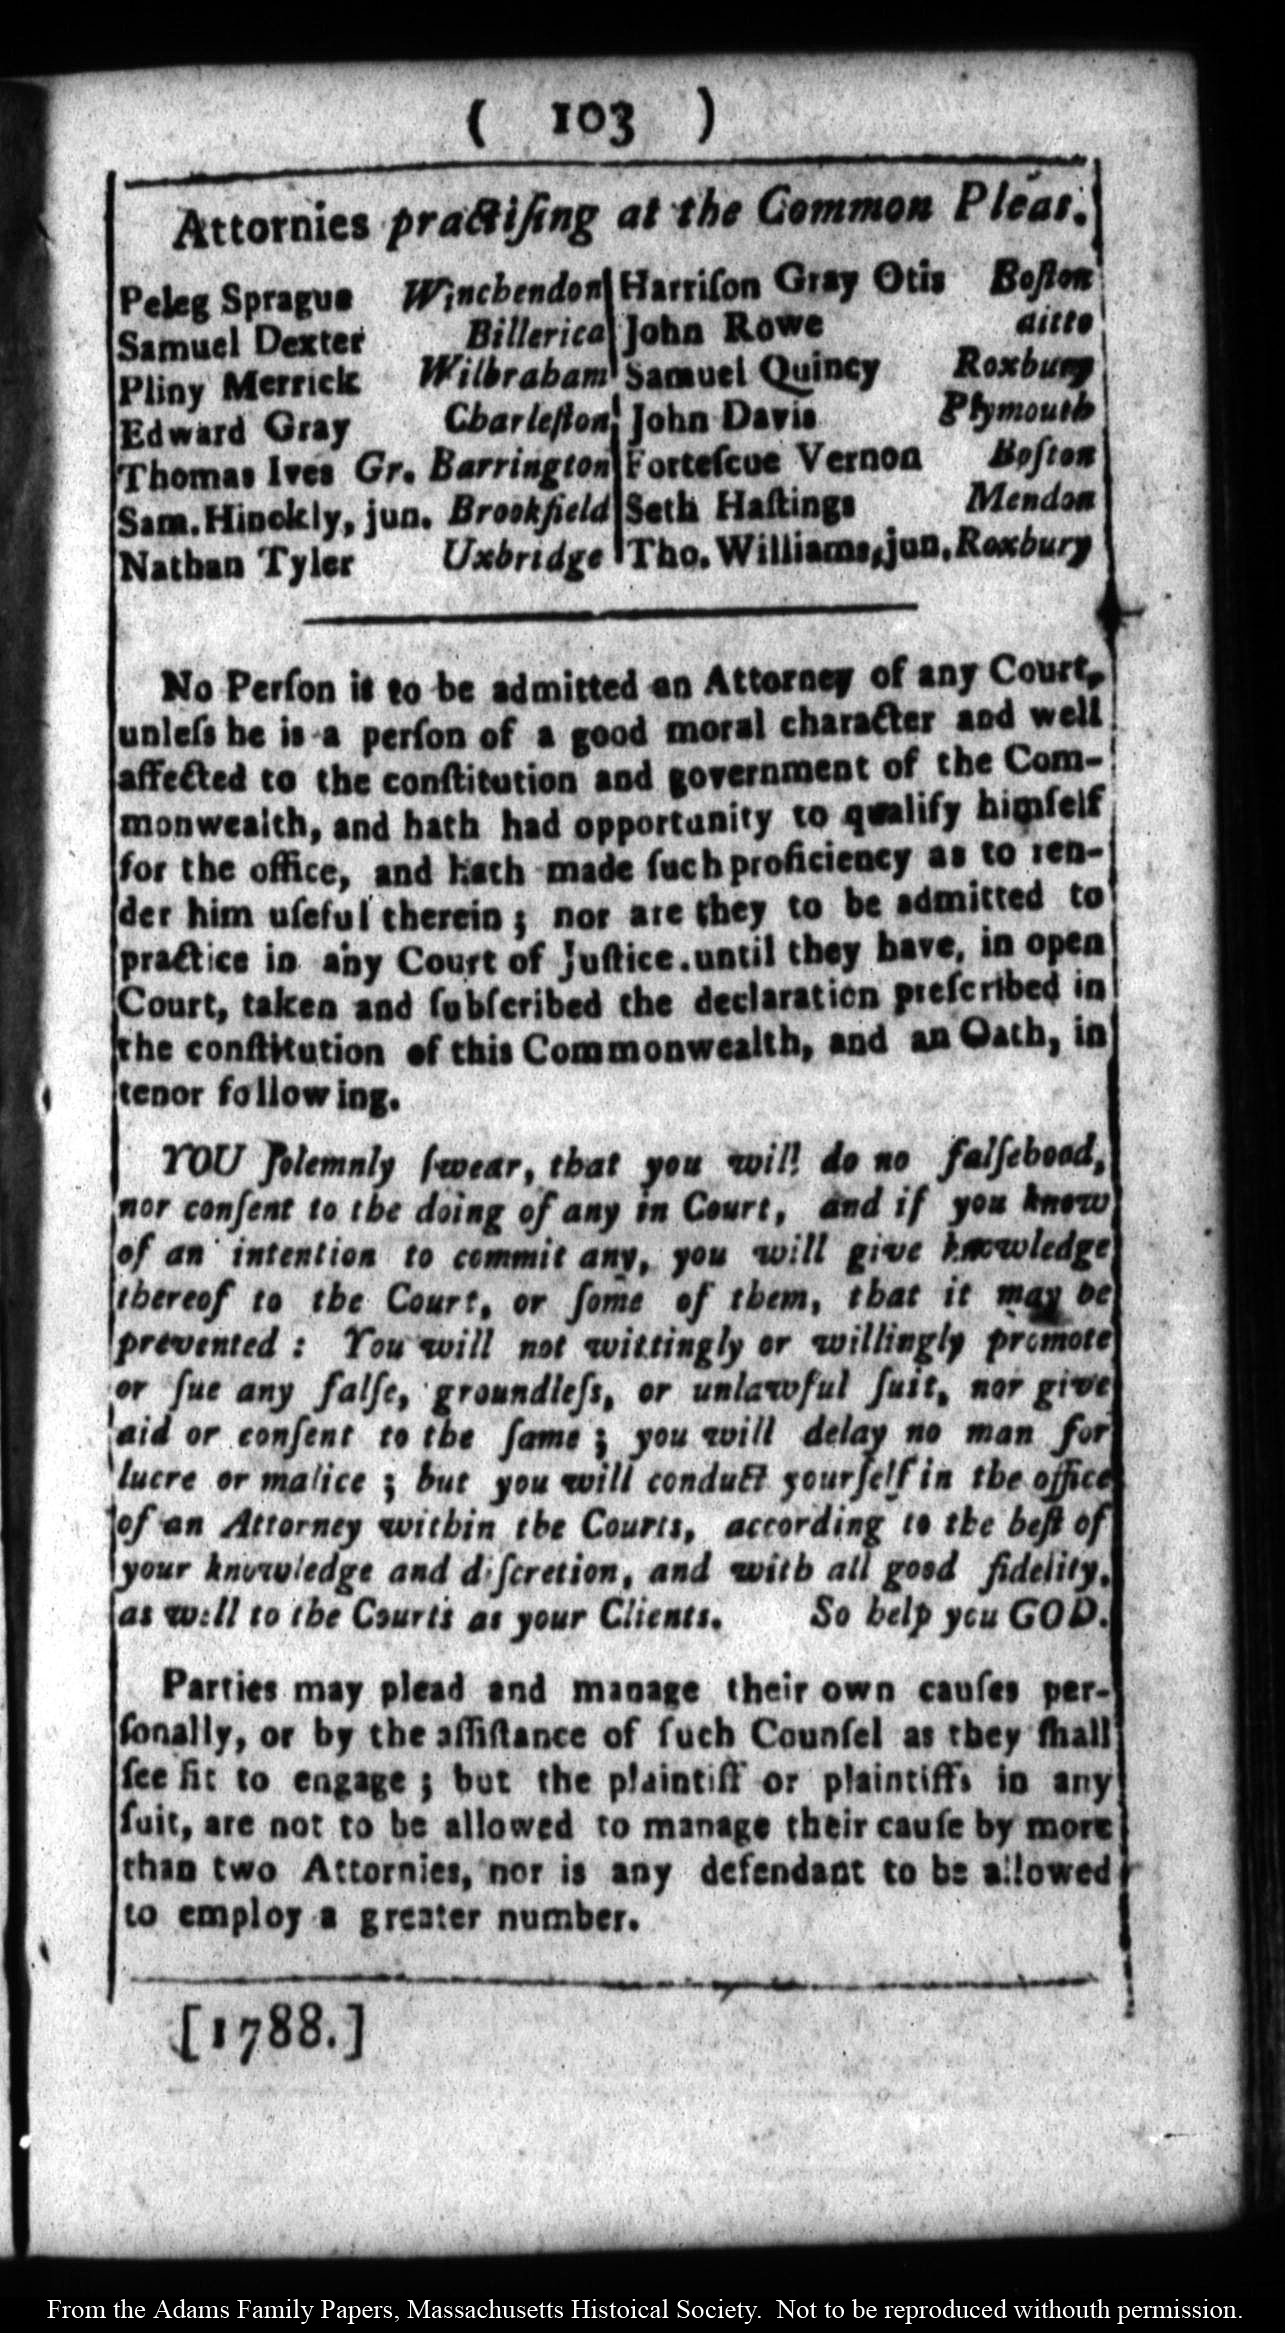 ( 103 )
Attornies practiſing at the Common Pleas.
Peleg Sprague Winchendon | Harriſon Gray Otis Boſton
Samuel Dexter Billerica | John Rowe ditto
Pliny Merrick Wilbraham | Samuel Quincy Roxbury
Edward Gray Charleſton | John Davis Plymouth
Thomas Ives Gr. Barrington | Forteſcue Vernon Boſton
Sam. Hinckly, jun. Brookfield | Seth Haſtings Mendon
Nathan Tyler Uxbridge | Tho. Williams, jun. Roxbury
No Perſon is to be admitted an Attorney of any Court,
unleſs he is a perſon of a good moral character and well
affected to the conſtitution and government of the Com-
monwealth, and hath had opportunity to qualify himſelf
for the office, and hath made ſuch proficiency as to ren-
der him uſeful therein ; nor are they to be admitted to
practice in any Court of Juſtice.until they have, in open
Court, taken and ſubſcribed the declaration preſcribed in
the conſtitution of this Commonwealth, and an Oath, in
tenor following.
YOU ſolemnly ſwear, that you will do no falſehood,
nor conſent to the doing of any in Court, and if you know
of an intention to commit any, you will give knowledge
thereof to the Court, or ſome of them, that it may be
prevented : You will not wittingly or willingly promote
or ſue any falſe, groundleſs, or unlawful ſuit, nor give
aid or conſent to the ſame ; you will delay no man for
lucre or malice ; but you will conduct yourſelf in the office
of an Attorney within the Courts, according to the beſt of
your knowledge and diſcretion, and with all good fidelity,
as well to the Courts as your Clients. So help you GOD.
Parties may plead and manage their own cauſes per-
ſonally, or by the aſſiſtance of ſuch Counſel as they ſhall
ſee fit to engage ; but the plaintiff or plaintiffs in any
ſuit, are not to be allowed to manage their cauſe by more
than two Attornies, nor is any defendant to be allowed
to employ a greater number.
[1788.]
From the Adams Family Papers, Massachusetts Histoical Society. Not to be reproduced withouth permission.